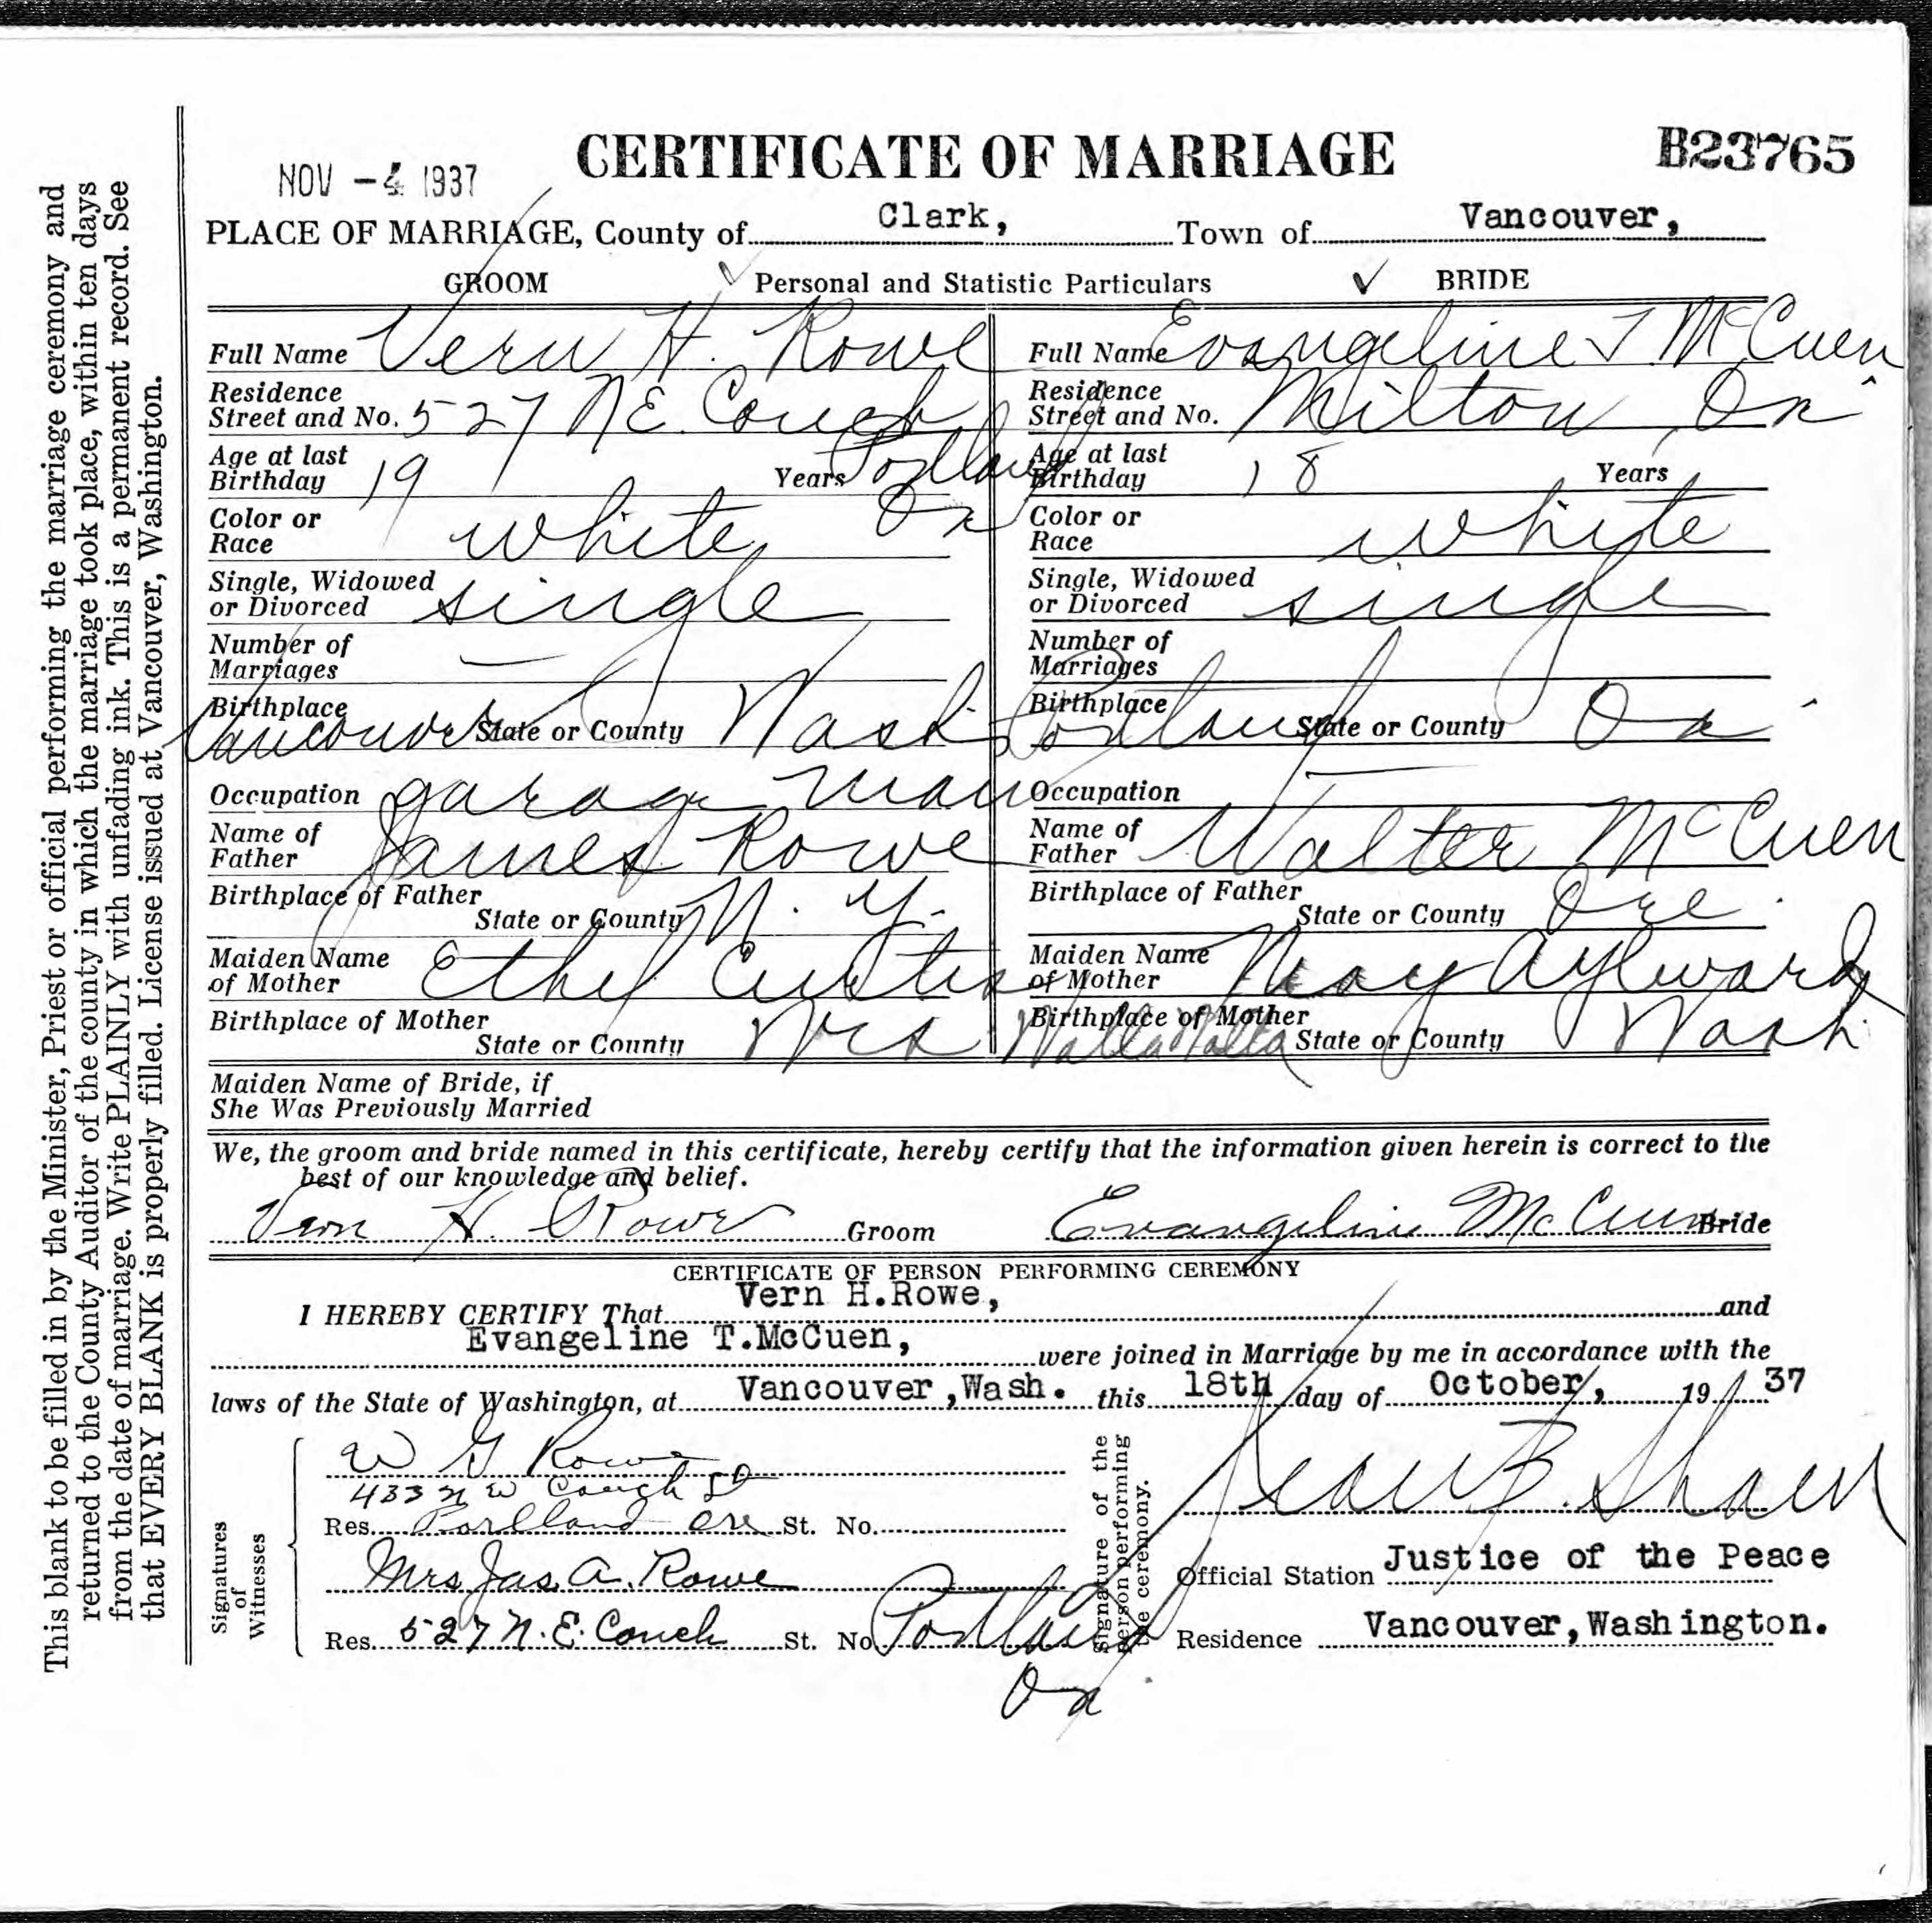 This blank to be filled in by the Minister, Priest or official performing the marriage ceremony and
returned to the County Auditor of the county in which the marriage took place, within ten days
from the date of marriage. Write PLAINLY with unfading ink. This is a permanent record. See
that EVERY BLANK is properly filled. License issued at Vancouver, Washington.
NOV -4 1937
CERTIFICATE OF MARRIAGE
B23765
PLACE OF MARRIAGE, County of Clark, Town of Vancouver,
GROOM Personal and Statistic Particulars BRIDE
Full Name Vern H. Rowe
Residence
Street and No. 527 N E. Couch
Portland
Or
Age at last
Birthday 19 Years
Color or
Race white
Single, Widowed
or Divorced single
Number of
Marriages —
Birthplace
Vancouver State or County Wash
Occupation garage man
Name of
Father James Rowe
Birthplace of Father
State or County N. Y.
Maiden Name
of Mother Ethel Curtis
Birthplace of Mother
State or County
Full Name Evangeline T McCuen
Residence
Street and No. Milton, Or
Age at last
Birthday 18 Years
Color or
Race white
Single, Widowed
or Divorced single
Number of
Marriages
Birthplace
Portland State or County Or
Occupation —
Name of
Father Walter McCuen
Birthplace of Father
State or County Ore.
Maiden Name
of Mother May Aylward
Birthplace of Mother
Walla Walla State or County Wash.
Maiden Name of Bride, if
She Was Previously Married
We, the groom and bride named in this certificate, hereby certify that the information given herein is correct to the
best of our knowledge and belief.
Vern H. Rowe Groom Evangeline McCuen Bride
CERTIFICATE OF PERSON PERFORMING CEREMONY
I HEREBY CERTIFY That Vern H.Rowe, and
Evangeline T.McCuen, were joined in Marriage by me in accordance with the
laws of the State of Washington, at Vancouver,Wash. this 18th day of October, 19 37
Signatures
of
Witnesses
W G Rowe
433 N W Couch St
Res. Portland Ore St. No.
Mrs Jas. A. Rowe
Res. 527 N. E. Couch St. No. Portland
Or
Signature of the
person performing
the ceremony.
B. Shaw
Official Station Justice of the Peace
Residence Vancouver,Washington.